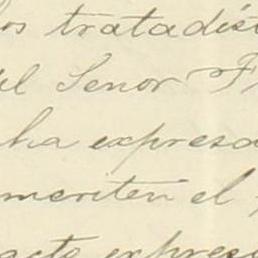 los tratadist
del Senor F
ha expresa
meriten el
acto expresa